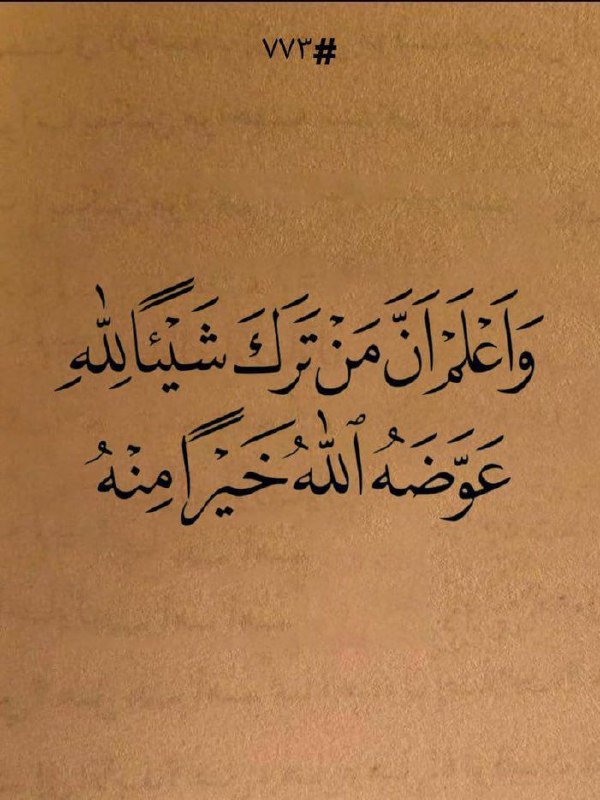 #٧٧٣
وَاَعْلَمْ اَنَّ مَنْ تَرَكَ شَيْئًا لِلّٰهِ
عَوَّضَهُ ٱللّٰهُ خَيْرًا مِنْهُ